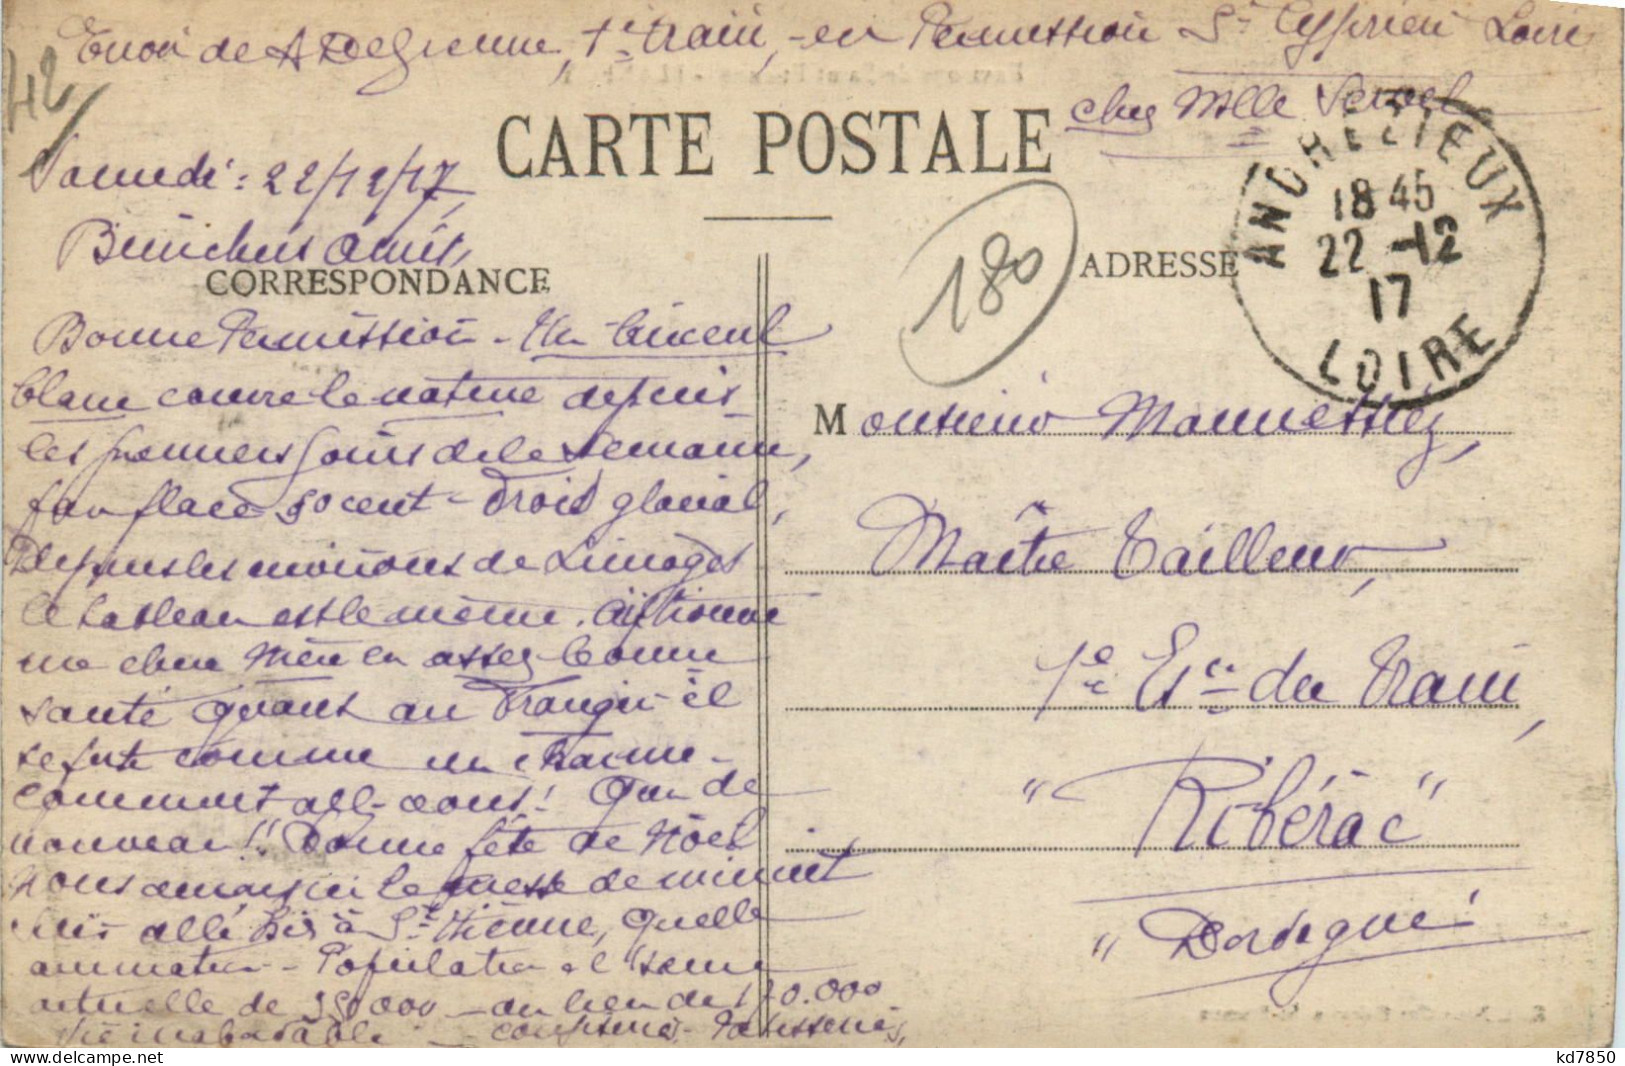 Envoi de A Degienne, 1er train, en Permission St Cyprien Loire
chez Melle
42
CARTE POSTALE
Samedi: 22/12/17
Bien chers amis,
CORRESPONDANCE
Bonne Permission - Un linceul
blanc couvre la nature depuis
les premiers jours de la semaine,
par place 50 cent - Froid glacial,
Depuis les environs de Limoges
le tableau est le même.
ma chère Mère en assez bonne
santé quant au Frangin il
se porte comme un charme -
comment allez-vous! Quoi de
nouveau!! Bonne fête de Noël
Nous aurons ici la messe de minuit
Suis allé hier à St Etienne, quelle
animation - Population
actuelle de 350000 - au lieu de 170.000
Vie inabordable - Pâtisseries,
180
ADRESSE
ANDREZIEUX
18 45
22 -12
17
LOIRE
Monsieur Mannessiez,
Maître Tailleur,
1e Esc. du Train,
"Ribérac"
"Dordogne"
kd7850